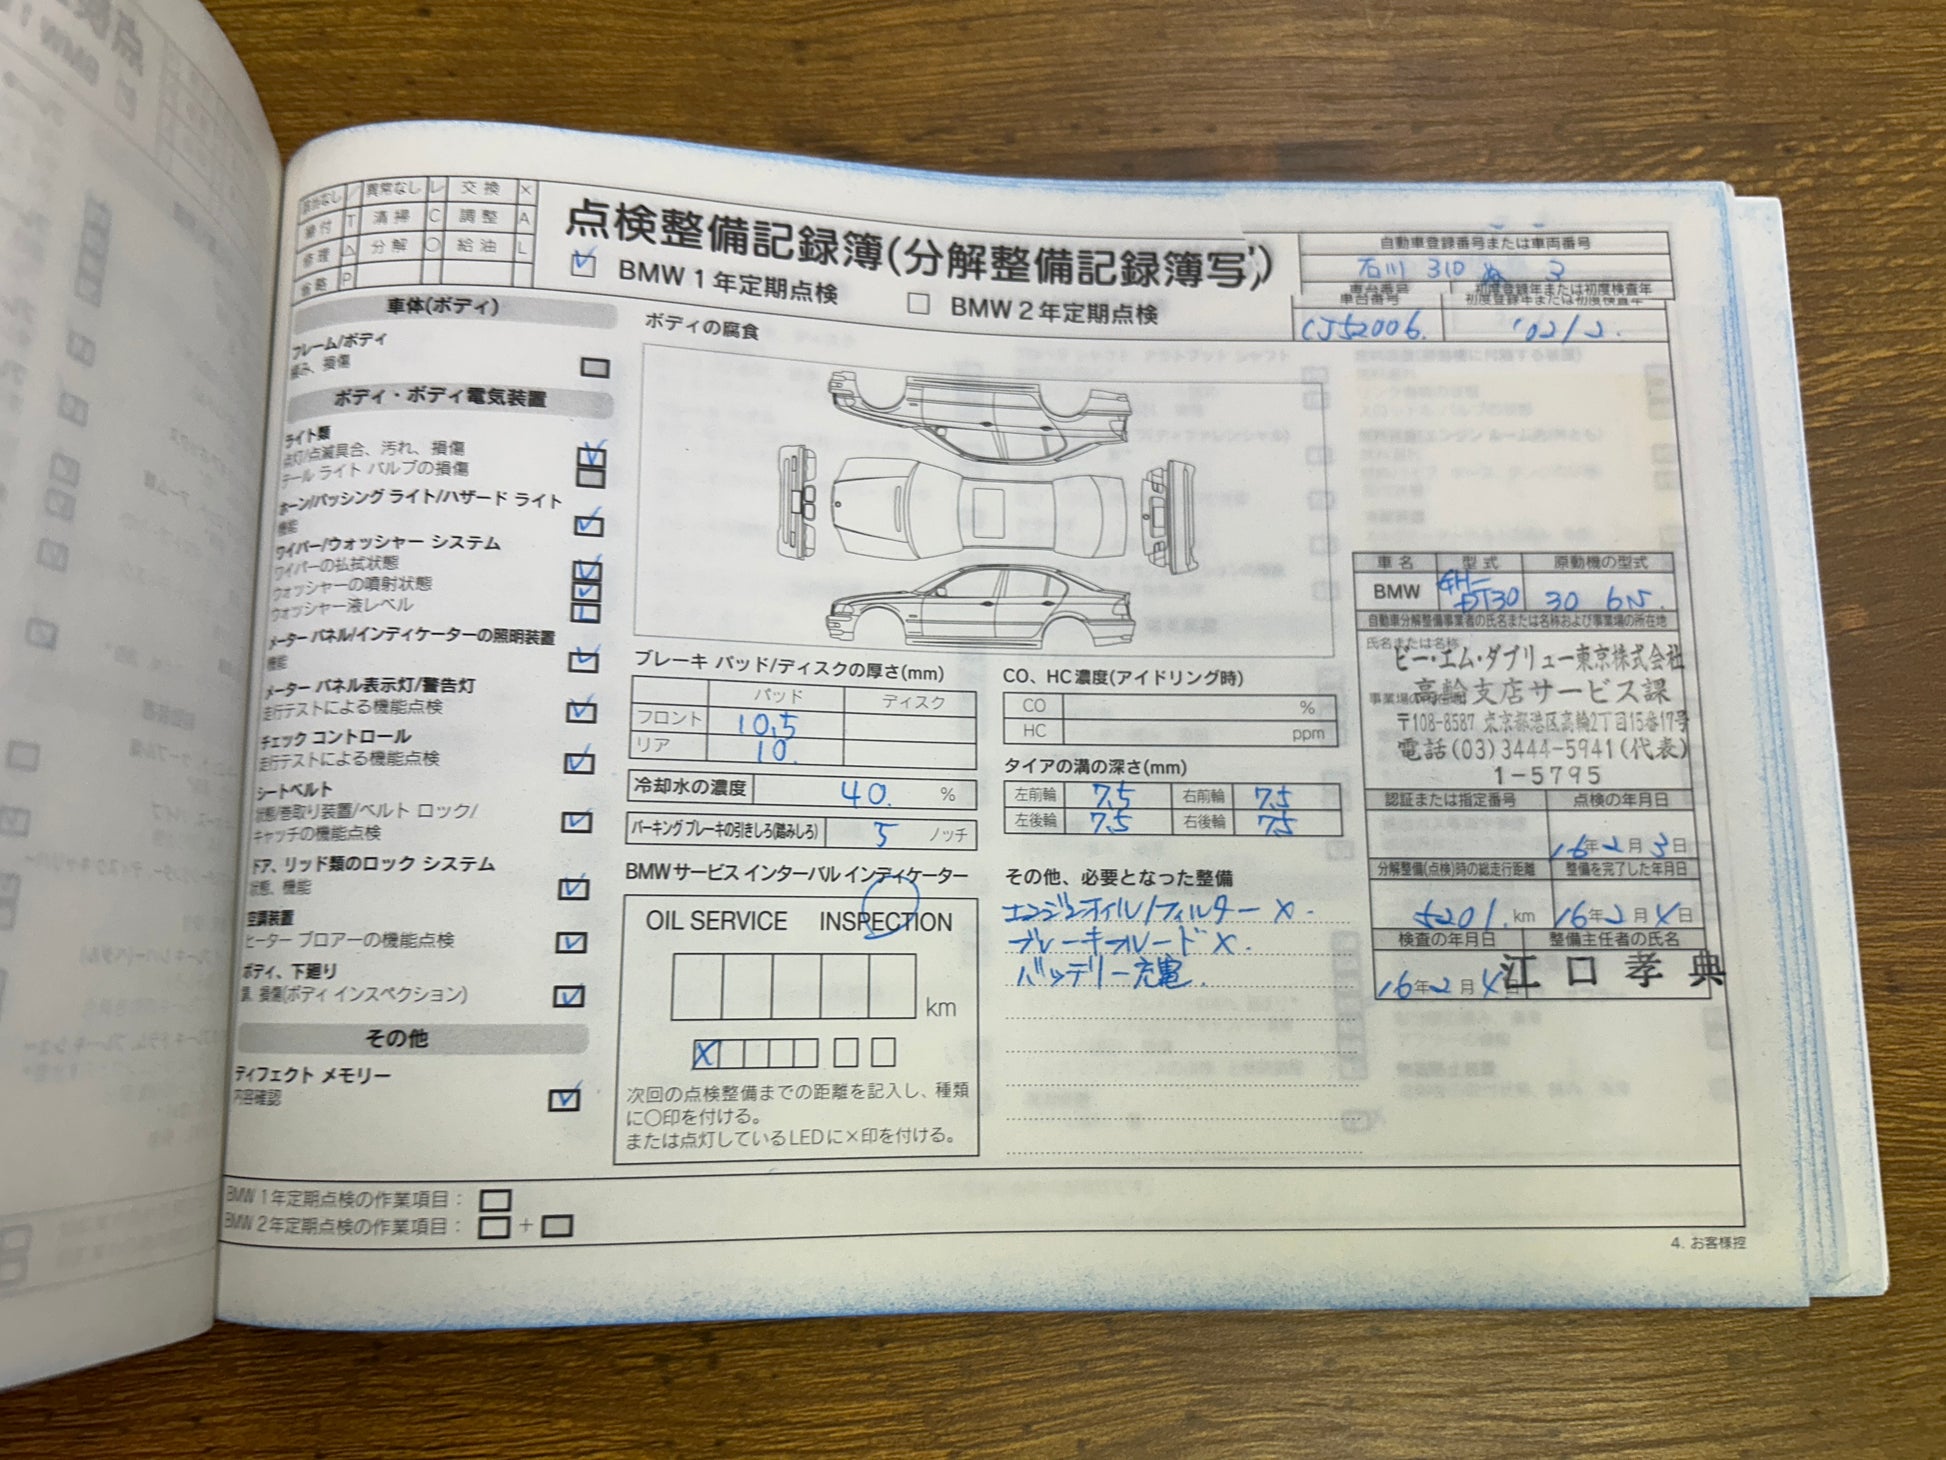 該当なし / 異常なし レ 交換 ×
締付 T 清掃 C 調整 A
修理 △ 分解 ○ 給油 L
省略 P
点検整備記録簿(分解整備記録簿写)
BMW 1年定期点検
BMW 2年定期点検
自動車登録番号または車両番号
石川 310 ぬ 3
車台番号 初度登録年または初度検査年
車台番号 初度登録年または初度検査年
CJ52006. '02/2.
車体(ボディ)
フレーム/ボディ
緩み、損傷
ボディ・ボディ電気装置
ライト類
点灯/点滅具合、汚れ、損傷
テール ライト バルブの損傷
ホーン/パッシング ライト/ハザード ライト
機能
ワイパー/ウォッシャー システム
ワイパーの払拭状態
ウォッシャーの噴射状態
ウォッシャー液レベル
L
メーター パネル/インディケーターの照明装置
機能
メーター パネル表示灯/警告灯
走行テストによる機能点検
チェック コントロール
走行テストによる機能点検
シートベルト
状態/巻取り装置/ベルト ロック/
キャッチの機能点検
ドア、リッド類のロック システム
状態、機能
空調装置
ヒーター ブロアーの機能点検
ボディ、下廻り
損傷(ボディ インスペクション)
その他
ディフェクト メモリー
内容確認
ボディの腐食
ブレーキ パッド/ディスクの厚さ(mm)
パッド ディスク
フロント 10.5
リア 10.
冷却水の濃度 40. %
パーキング ブレーキの引きしろ(踏みしろ) 5 ノッチ
BMWサービス インターバル インディケーター
OIL SERVICE INSPECTION
km
X
次回の点検整備までの距離を記入し、種類
に○印を付ける。
または点灯しているLEDに×印を付ける。
CO、HC濃度(アイドリング時)
CO %
HC ppm
タイアの溝の深さ(mm)
左前輪 7.5 右前輪 7.5
左後輪 7.5 右後輪 7.5
その他、必要となった整備
エンジンオイル/フィルター ×.
ブレーキフルード ×.
バッテリー充電.
車名 型式 原動機の型式
BMW GH-DT30 30 6N.
自動車分解整備事業者の氏名または名称および事業場の所在地
氏名または名称
ビー・エム・ダブリュー東京株式会社
高輪支店サービス課
〒108-8587 東京都港区高輪2丁目15番17号
電話(03)3444-5941(代表)
1-5795
認証または指定番号 点検の年月日
16年2月3日
分解整備(点検)時の総走行距離 整備を完了した年月日
5201. km 16年2月4日
検査の年月日 整備主任者の氏名
16年2月4日 江口孝典
BMW 1年定期点検の作業項目:
BMW 2年定期点検の作業項目: +
4. お客様控